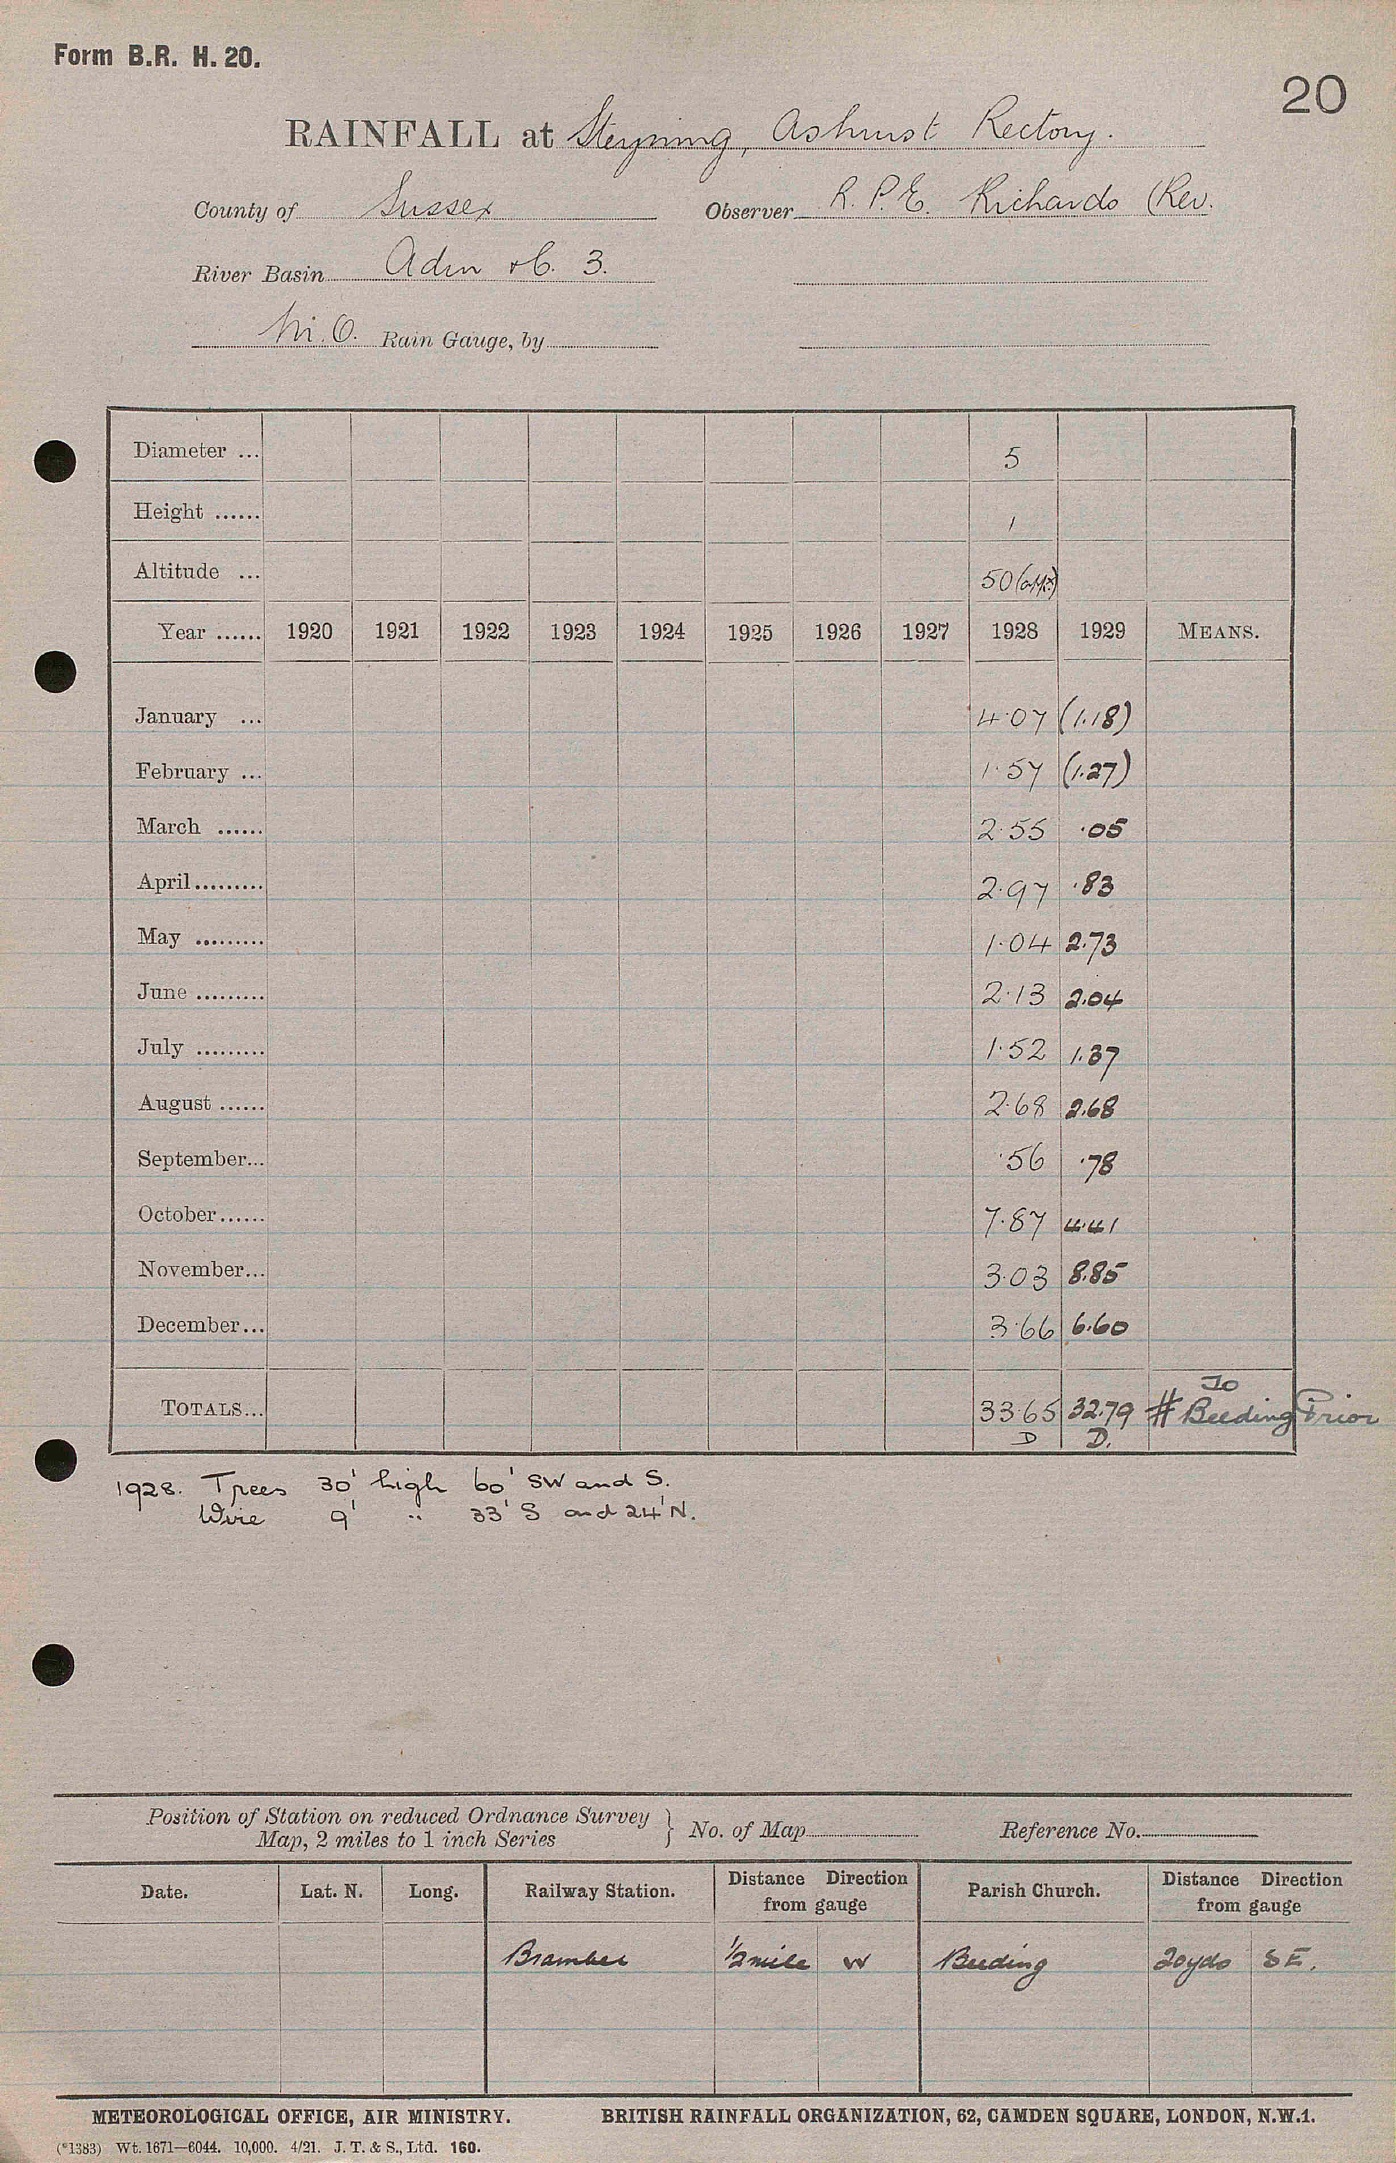 Form B.R. H. 20.
20
RAINFALL at Steyning, Ashurst Rectory.
County of Sussex Observer R. P. E. Richards (Rev.
River Basin Adur &c. 3.
M.O. Rain Gauge, by
Diameter ... 5
Height ...... 1
Altitude ... 50 (apx.)
Year ...... 1920 1921 1922 1923 1924 1925 1926 1927 1928 1929 MEANS.
January ... 4.07 (1.18)
February ... 1.57 (1.27)
March ...... 2.55 .05
April......... 2.97 .83
May ......... 1.04 2.73
June ......... 2.13 2.04
July ......... 1.52 1.37
August ...... 2.68 2.68
September... .56 .78
October...... 7.87 4.41
November... 3.03 8.85
December... 3.66 6.60
To
TOTALS... 33.65 32.79 # Beeding Prior
D D.
1928. Trees 30' high 60' SW and S.
Wire 9' " 33' S and 24' N.
Position of Station on reduced Ordnance Survey
Map, 2 miles to 1 inch Series } No. of Map Reference No.
Date. Lat. N. Long. Railway Station. Distance Direction from gauge Parish Church. Distance Direction from gauge
Bramber 1/2 mile W Beeding 20 yds SE.
METEOROLOGICAL OFFICE, AIR MINISTRY. BRITISH RAINFALL ORGANIZATION, 62, CAMDEN SQUARE, LONDON, N.W.1.
(*1383) Wt. 1671—6044. 10,000. 4/21. J. T. & S., Ltd. 160.